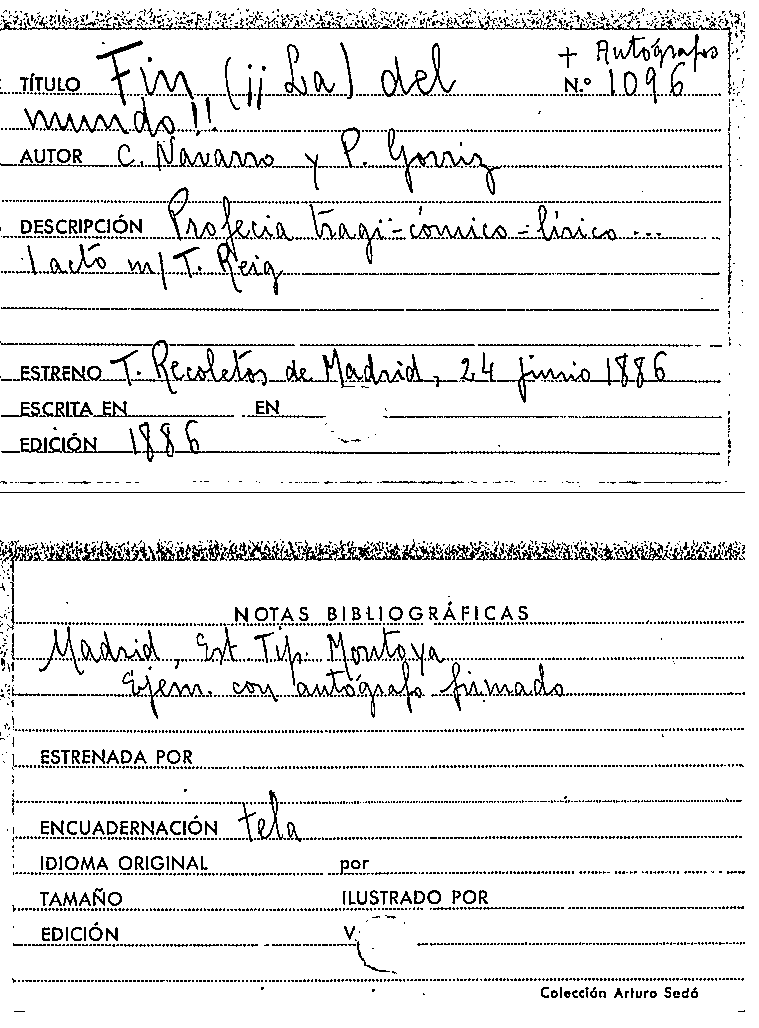 + Autógrafos
TÍTULO Fin (¡¡ La) del N.º 1096
mundo!!
AUTOR C. Navarro y P. Gorriz
DESCRIPCIÓN Profecia tragi-cómico-lírico ...
1 acto m/ T. Reig
ESTRENO T. Recoletos de Madrid, 24 junio 1886
ESCRITA EN EN
EDICIÓN 1886
NOTAS BIBLIOGRÁFICAS
Madrid, Est Tip. Montoya
Ejem. con autógrafo firmado
ESTRENADA POR
ENCUADERNACIÓN tela
IDIOMA ORIGINAL por
TAMAÑO ILUSTRADO POR
EDICIÓN V.
Colección Arturo Sedó